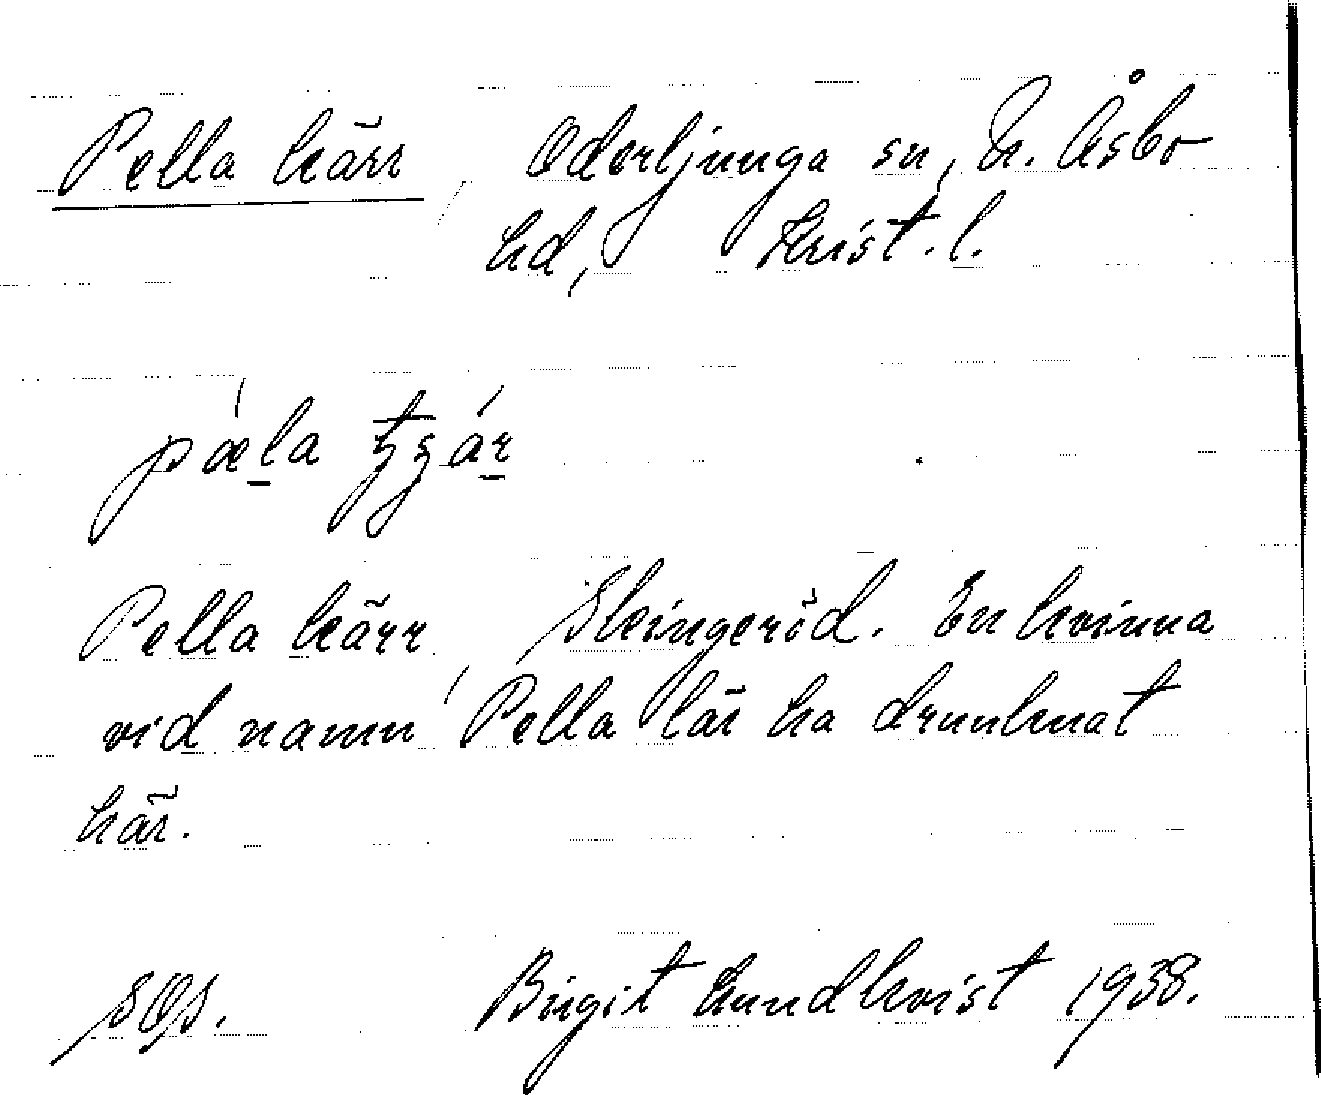 Pella kärr, Oderljunga sn, N. Åsbo
hd, Krist. l.
Pella kärr, Skingeröd. En kvinna
vid namn Pella lär ha drunknat
här.
Birgit Lundkvist 1938.